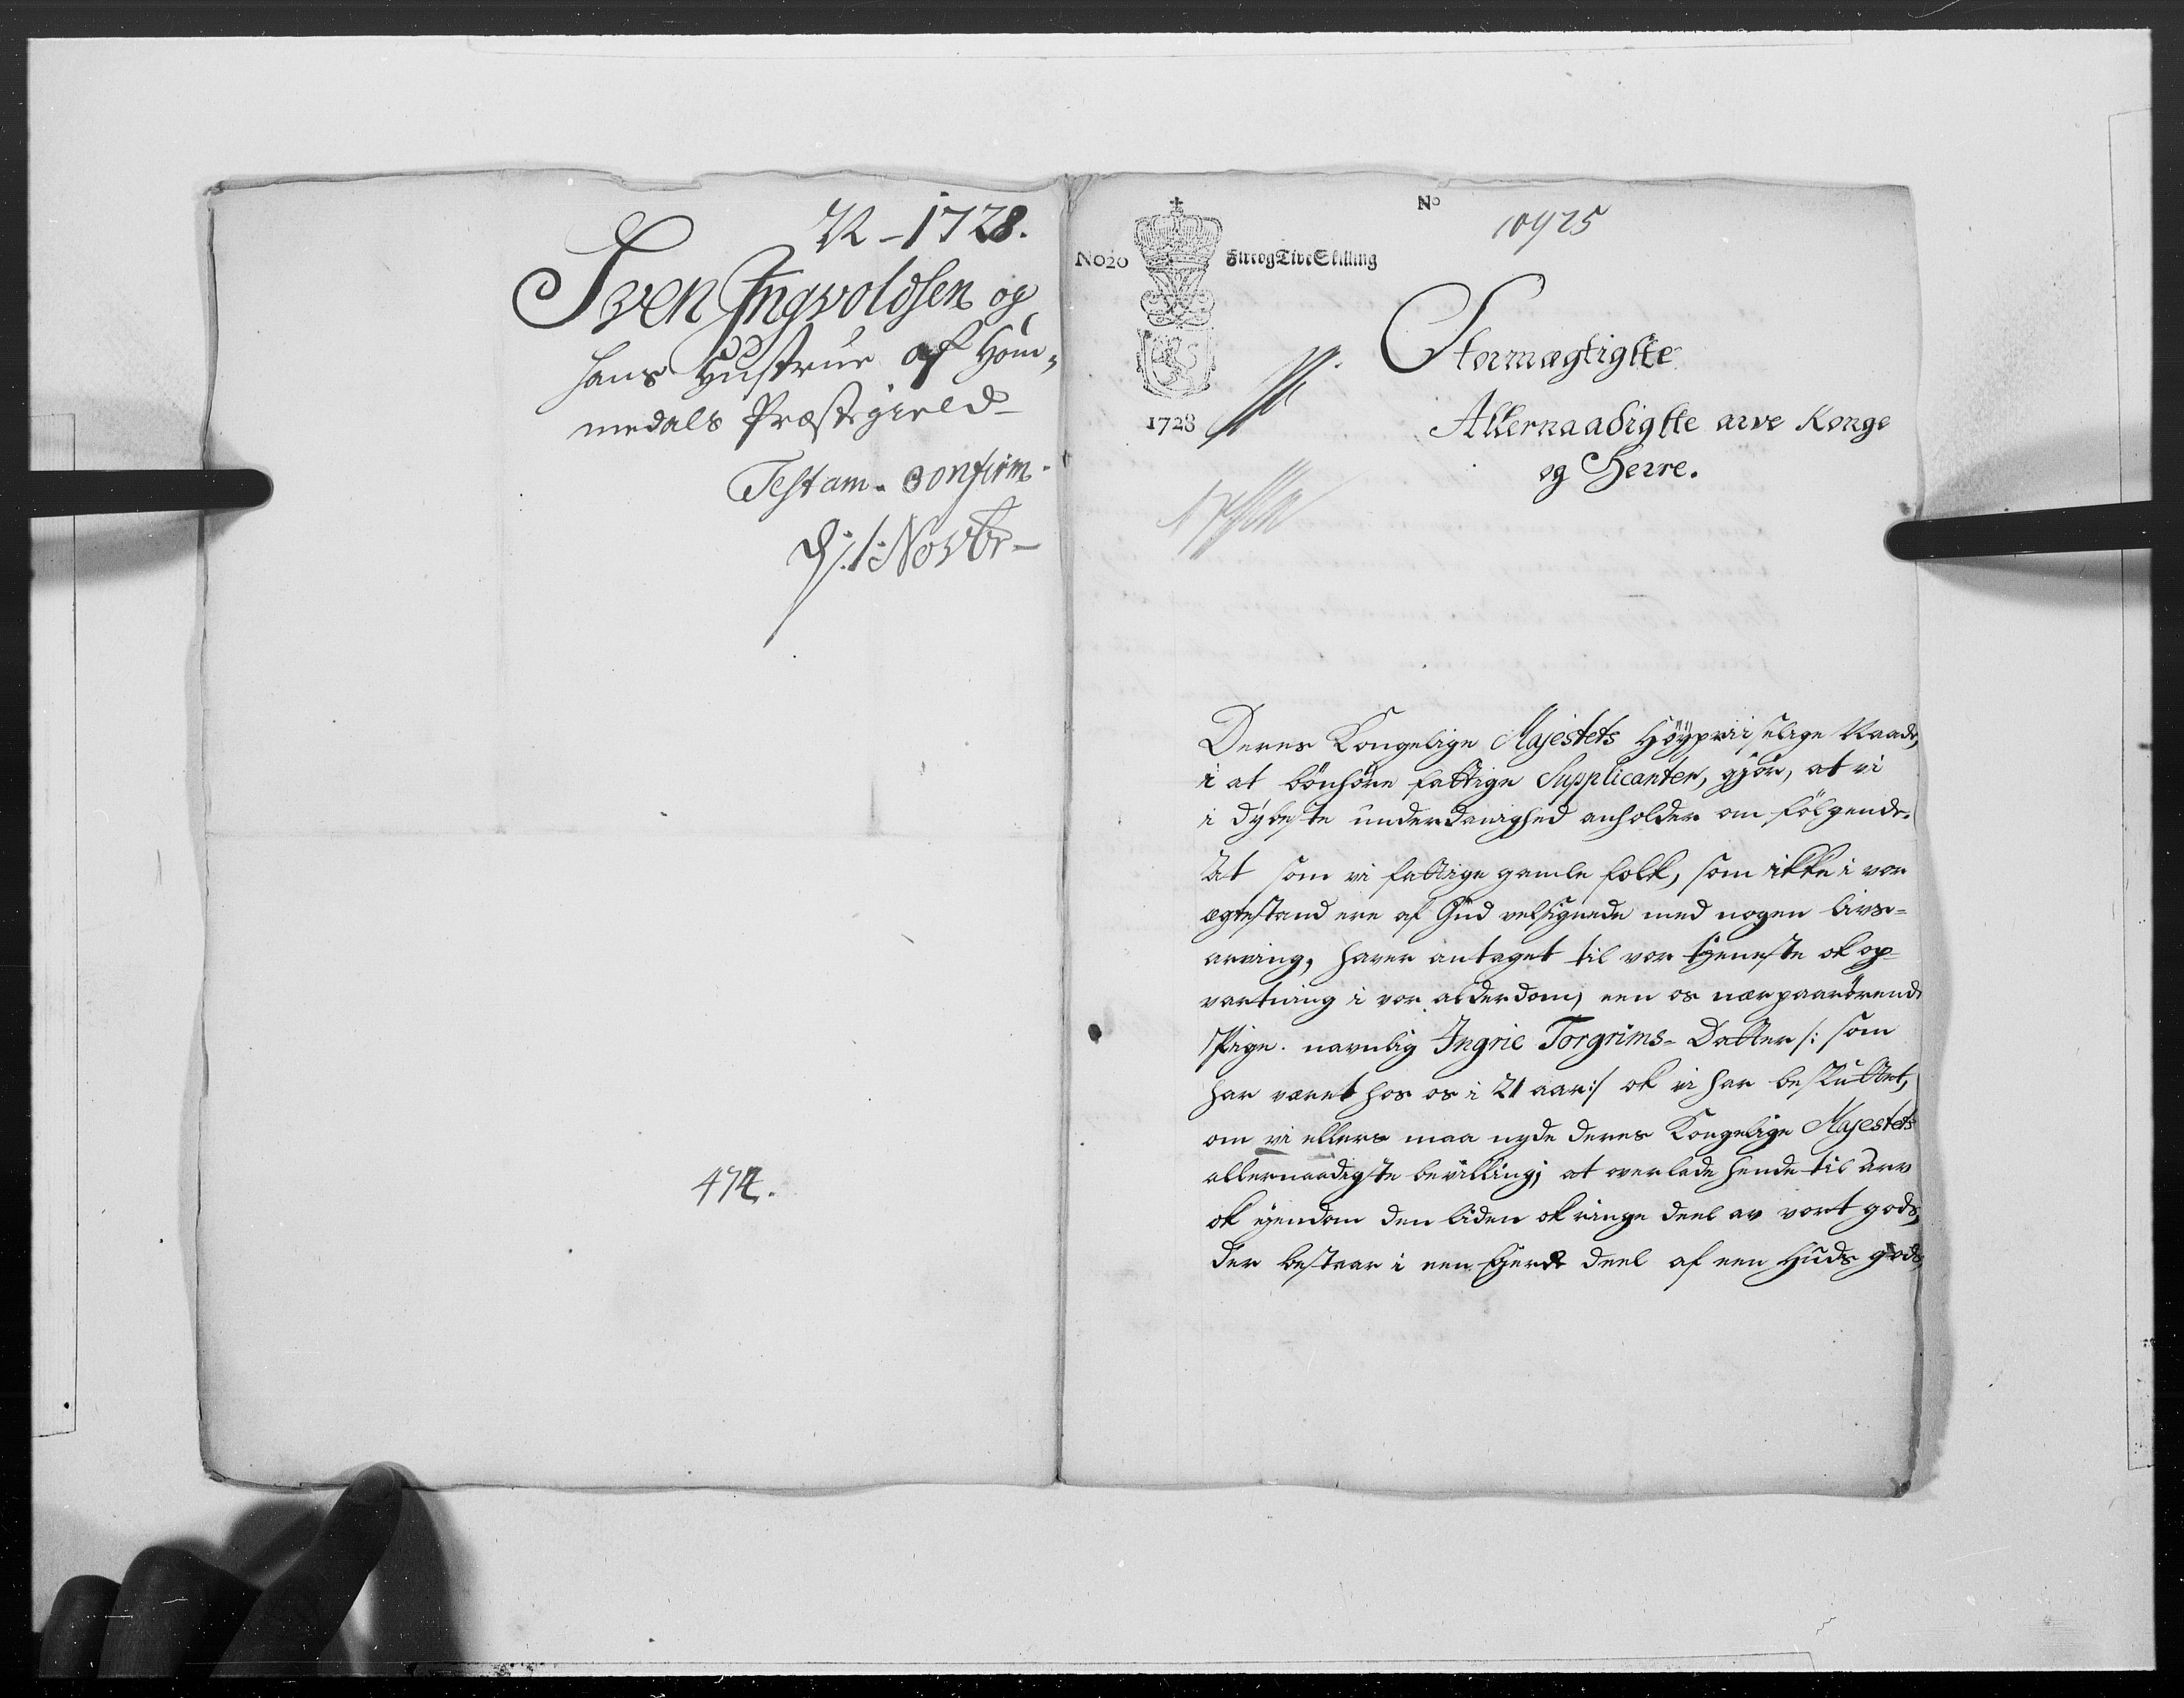 1728.
Sven Ingvoldsen og
hans Hustrue af Hom¬
medals Præstegield
Testam. Confirm.
D. 1. Novbr
474.
No
10425
No20
Fire og Tive Skilling
1728
Stormægtigste
Allernaadigste arve Konge
og Herre.
Deres Kongelige Majestets Høyprisselige Naade,
i at bönhöre fattige Supplicanter, gjör, at vi
i dybeste underdanighed anholder om fölgende.
At som vi fattige gamle folk, som ikke i vor
ægtestand ere af Gud velsignede med nogen livs=
arving, haver antaget til vor tjeneste ok op=
vartning i vor alderdom, een os nærpaarörende
Pige navnlig Ingrie Torgrims=Datter /: som
har været hos os i 21 aar :/ ok vi har besluttet,
om vi ellers maa nyde Deres Kongelige Majestets
allernaadigste bevilling; at overlade hende til Arv
ok ejendom den liden ok ringe deel av vort gods,
der bestaar i een fjerde deel af een Huds gods,